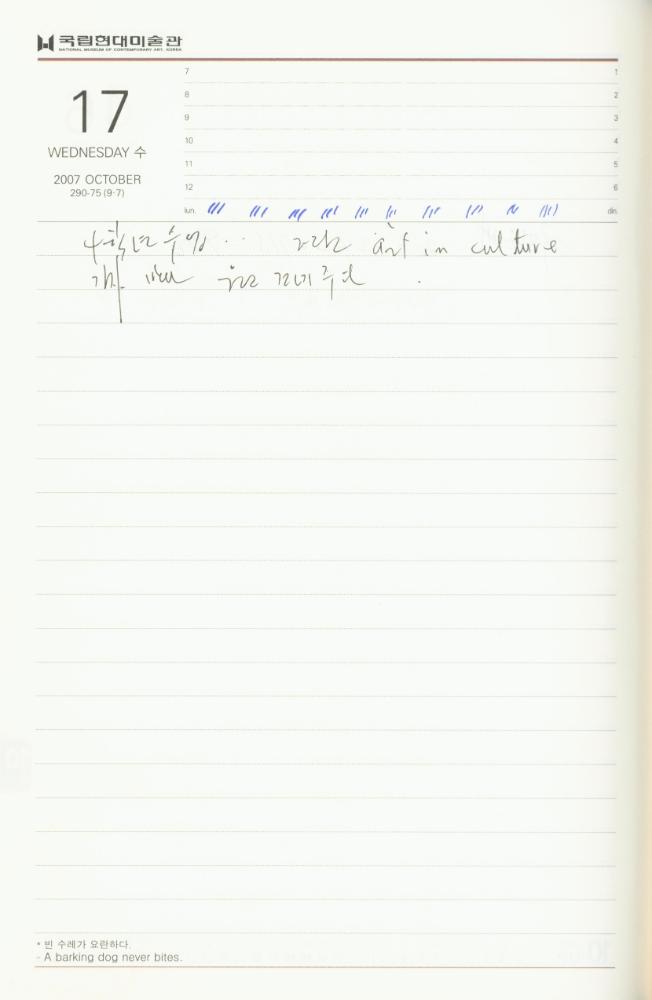 국립현대미술관
NATIONAL MUSEUM OF CONTEMPORARY ART, KOREA
17
WEDNESDAY 수
2007 OCTOBER
290-75 (9-7)
7 1
8 2
9 3
10 4
11 5
12 6
lun. din.
수영 art in culture
* 빈 수레가 요란하다.
- A barking dog never bites.